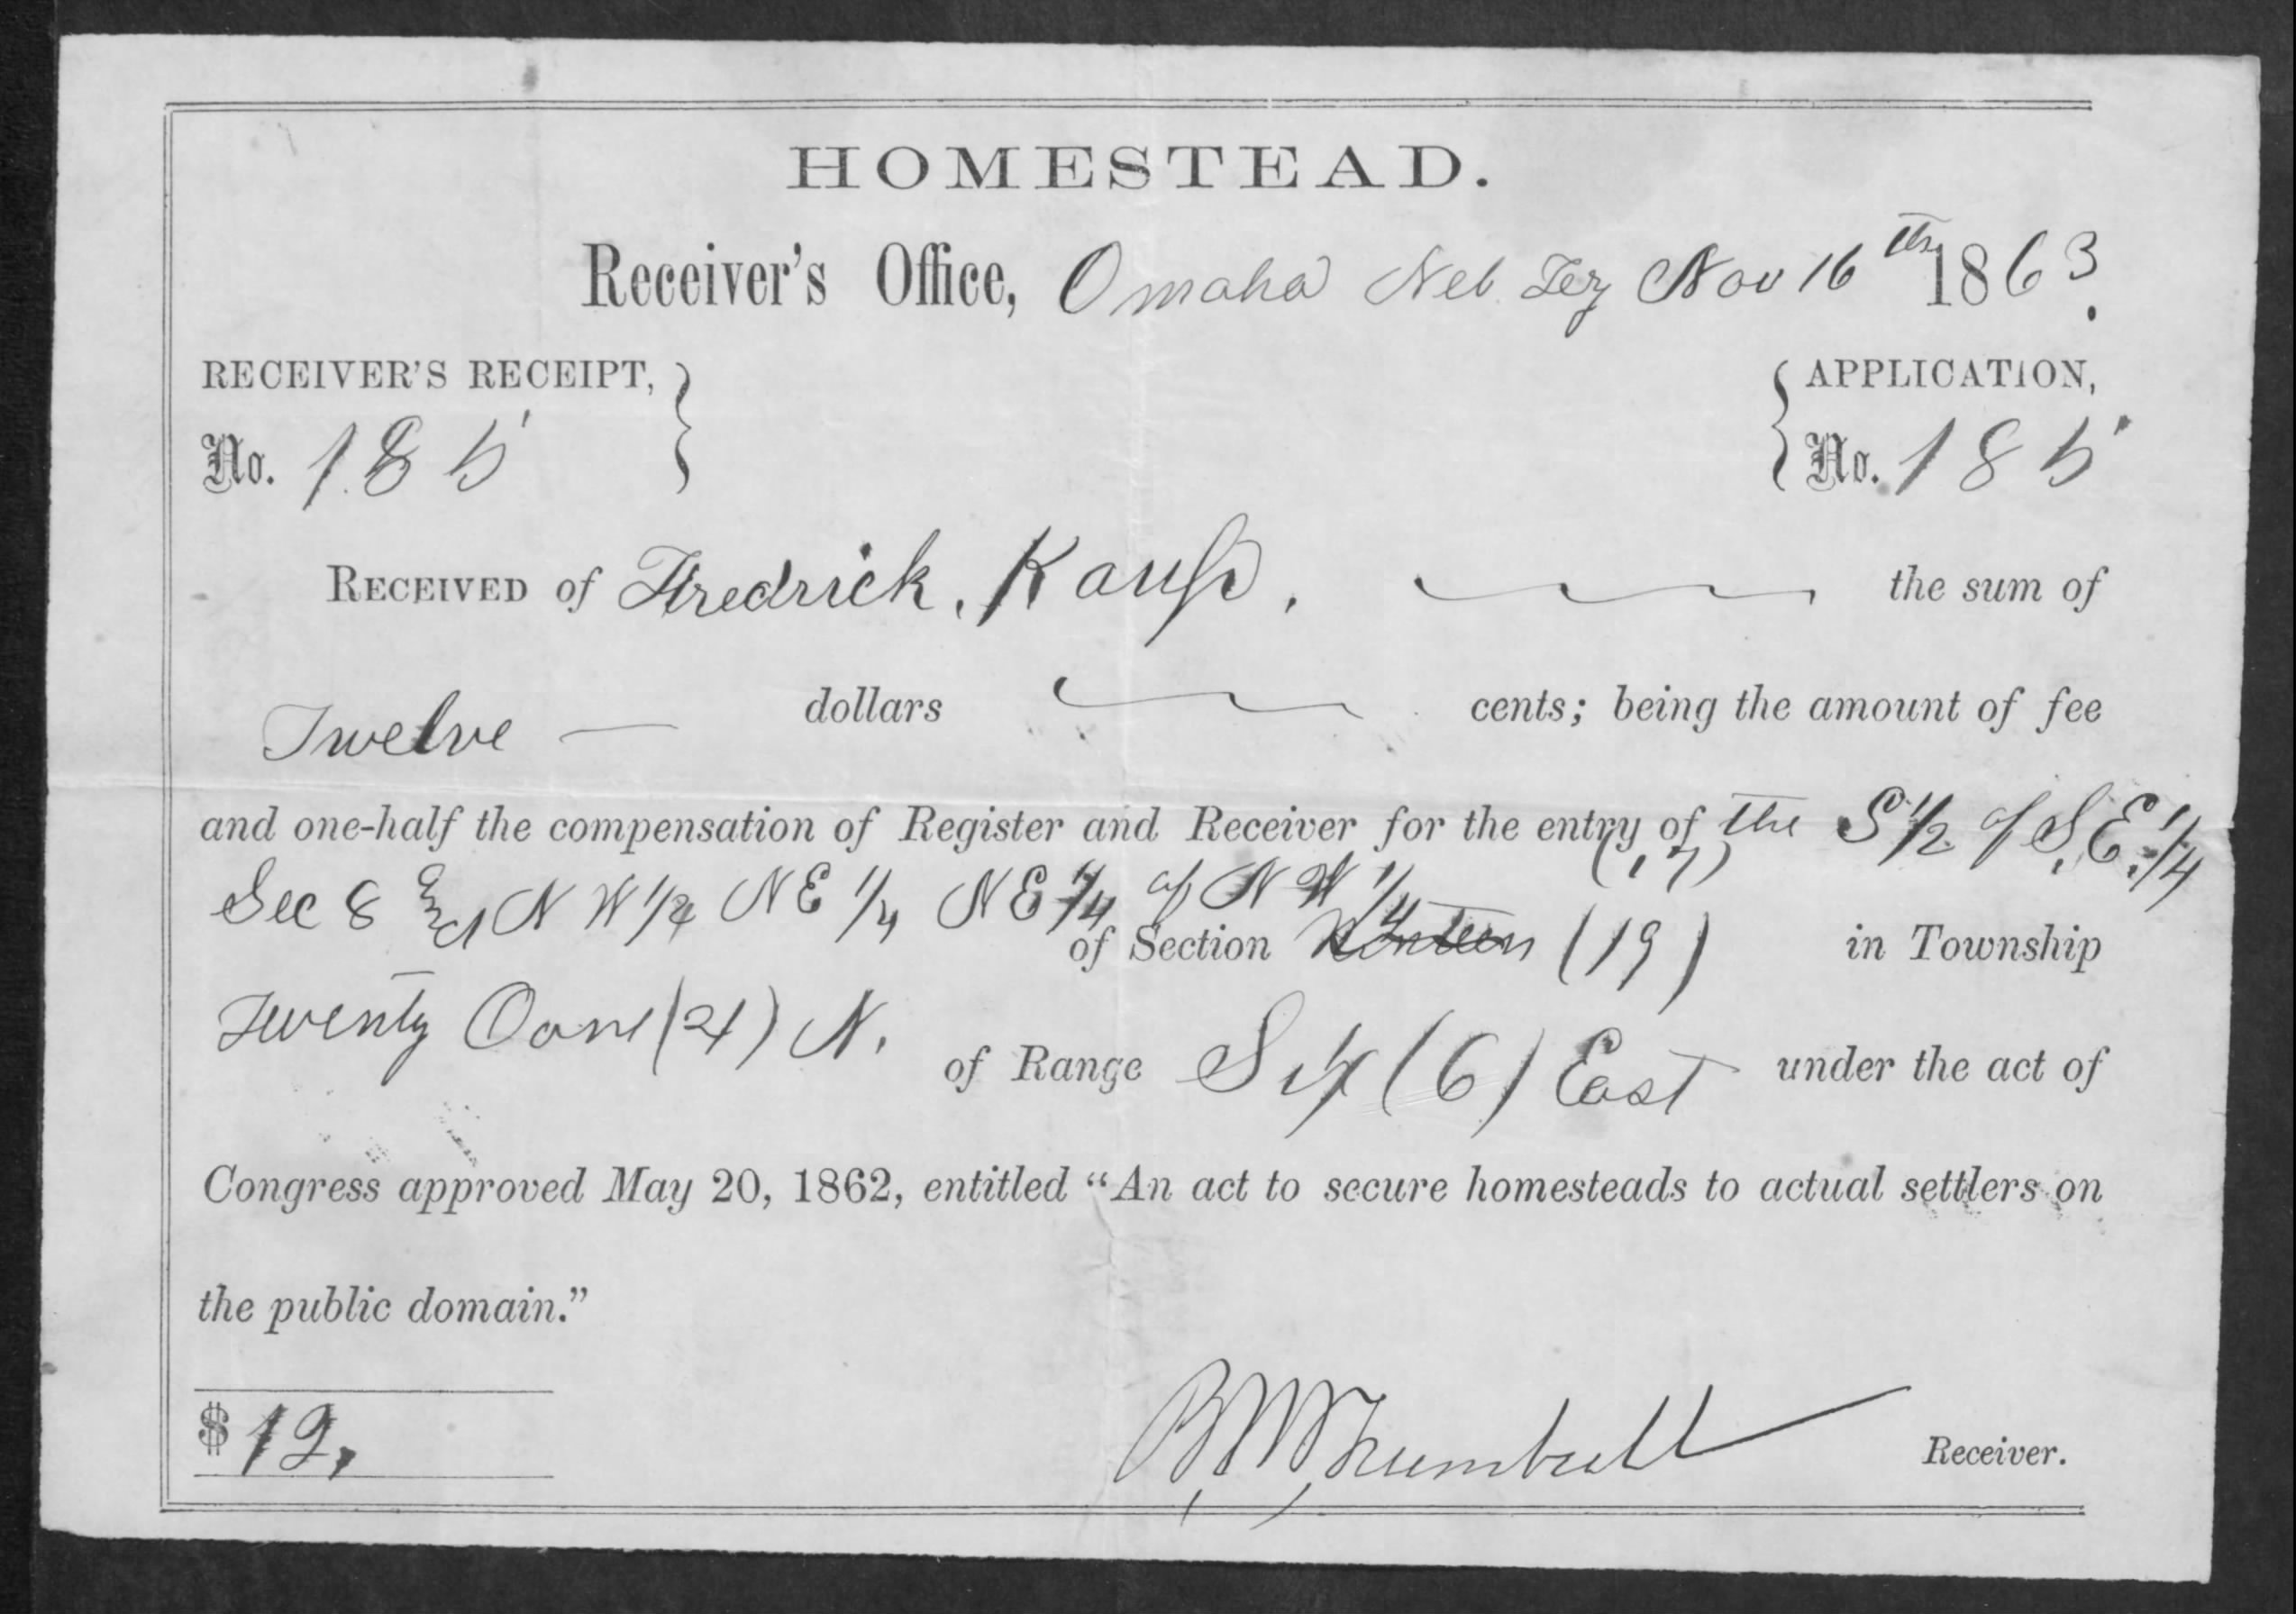 HOMESTEAD.
Receiver's Office, Omaha Neb Ter Nov 16th 1863.
RECEIVER'S RECEIPT, } { APPLICATION,
No. 185 No. 185
RECEIVED of Fredrick. Kauss, the sum of
Twelve — dollars cents; being the amount of fee
and one-half the compensation of Register and Receiver for the entry of the S 1/2 of S.E. 1/4
(17)
Sec 8 and N W 1/4 NE 1/4 NE 1/4 of N W 1/4
of Section Ninteen (19) in Township
Twenty Oone (21) N. of Range Six (6) East under the act of
Congress approved May 20, 1862, entitled “An act to secure homesteads to actual settlers on
the public domain.”
$ 12, Receiver.